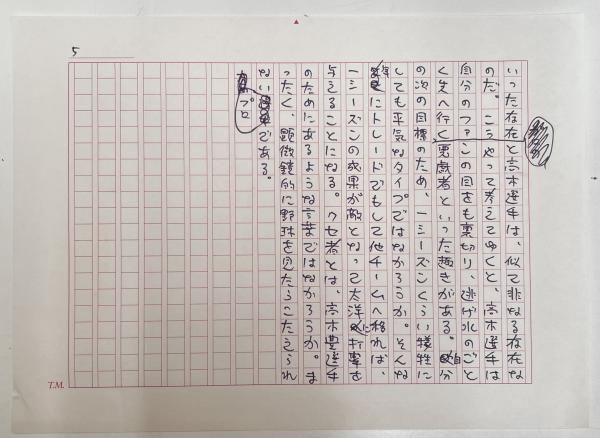 5
いった存在と高木選手は、似て非なる存在な
のだ。こうやって考えてゆくと、高木選手は
自分のファンの目をも裏切り、逃げ水のごと
く先へ行く悪戯者といった趣きがある。自分
の次の目標のため、一シーズンくらい犠牲に
しても平気なタイプではなかろうか。そんな
にトレードでもして他チームへ移れば、
一シーズンの成果が敵となって太洋に打撃を
与えることになる。クセ者とは、高木豊選手
のためにあるような言葉ではなかろうか。ま
ったく、顕微鏡的に野球を見たらこたえられ
ないプロである。
T.M.